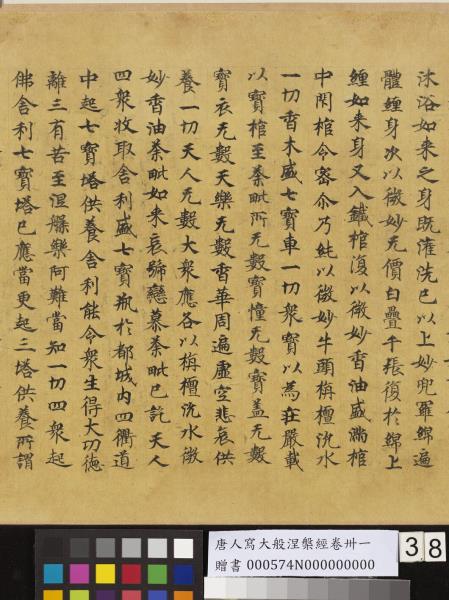 沐浴如来之身既灌洗已以上妙兜羅綿遍
體纏身次以微妙无價白疊千張復於綿上
纏如来身又入鐵棺復以微妙香油盛滿棺
中閇棺令密尒乃純以微妙牛頭栴檀沉水
一切香木盛七寶車一切衆寶以爲莊嚴載
以寶棺至荼毗所无數寶幢无數寶蓋无數
寶衣无數天樂无數香華周遍虛空悲哀供
養一切天人无數大衆應各以栴檀沉水微
妙香油荼毗如来哀號戀慕荼毗已訖天人
四衆收取舍利盛七寶瓶於都城内四衢道
中起七寶塔供養舍利能令衆生得大功德
離三有苦至涅槃樂阿難當知一切四衆起
佛舍利七寶塔已應當更起三塔供養所謂
唐人寫大般涅槃經卷卅一
贈書 000574N000000000
38